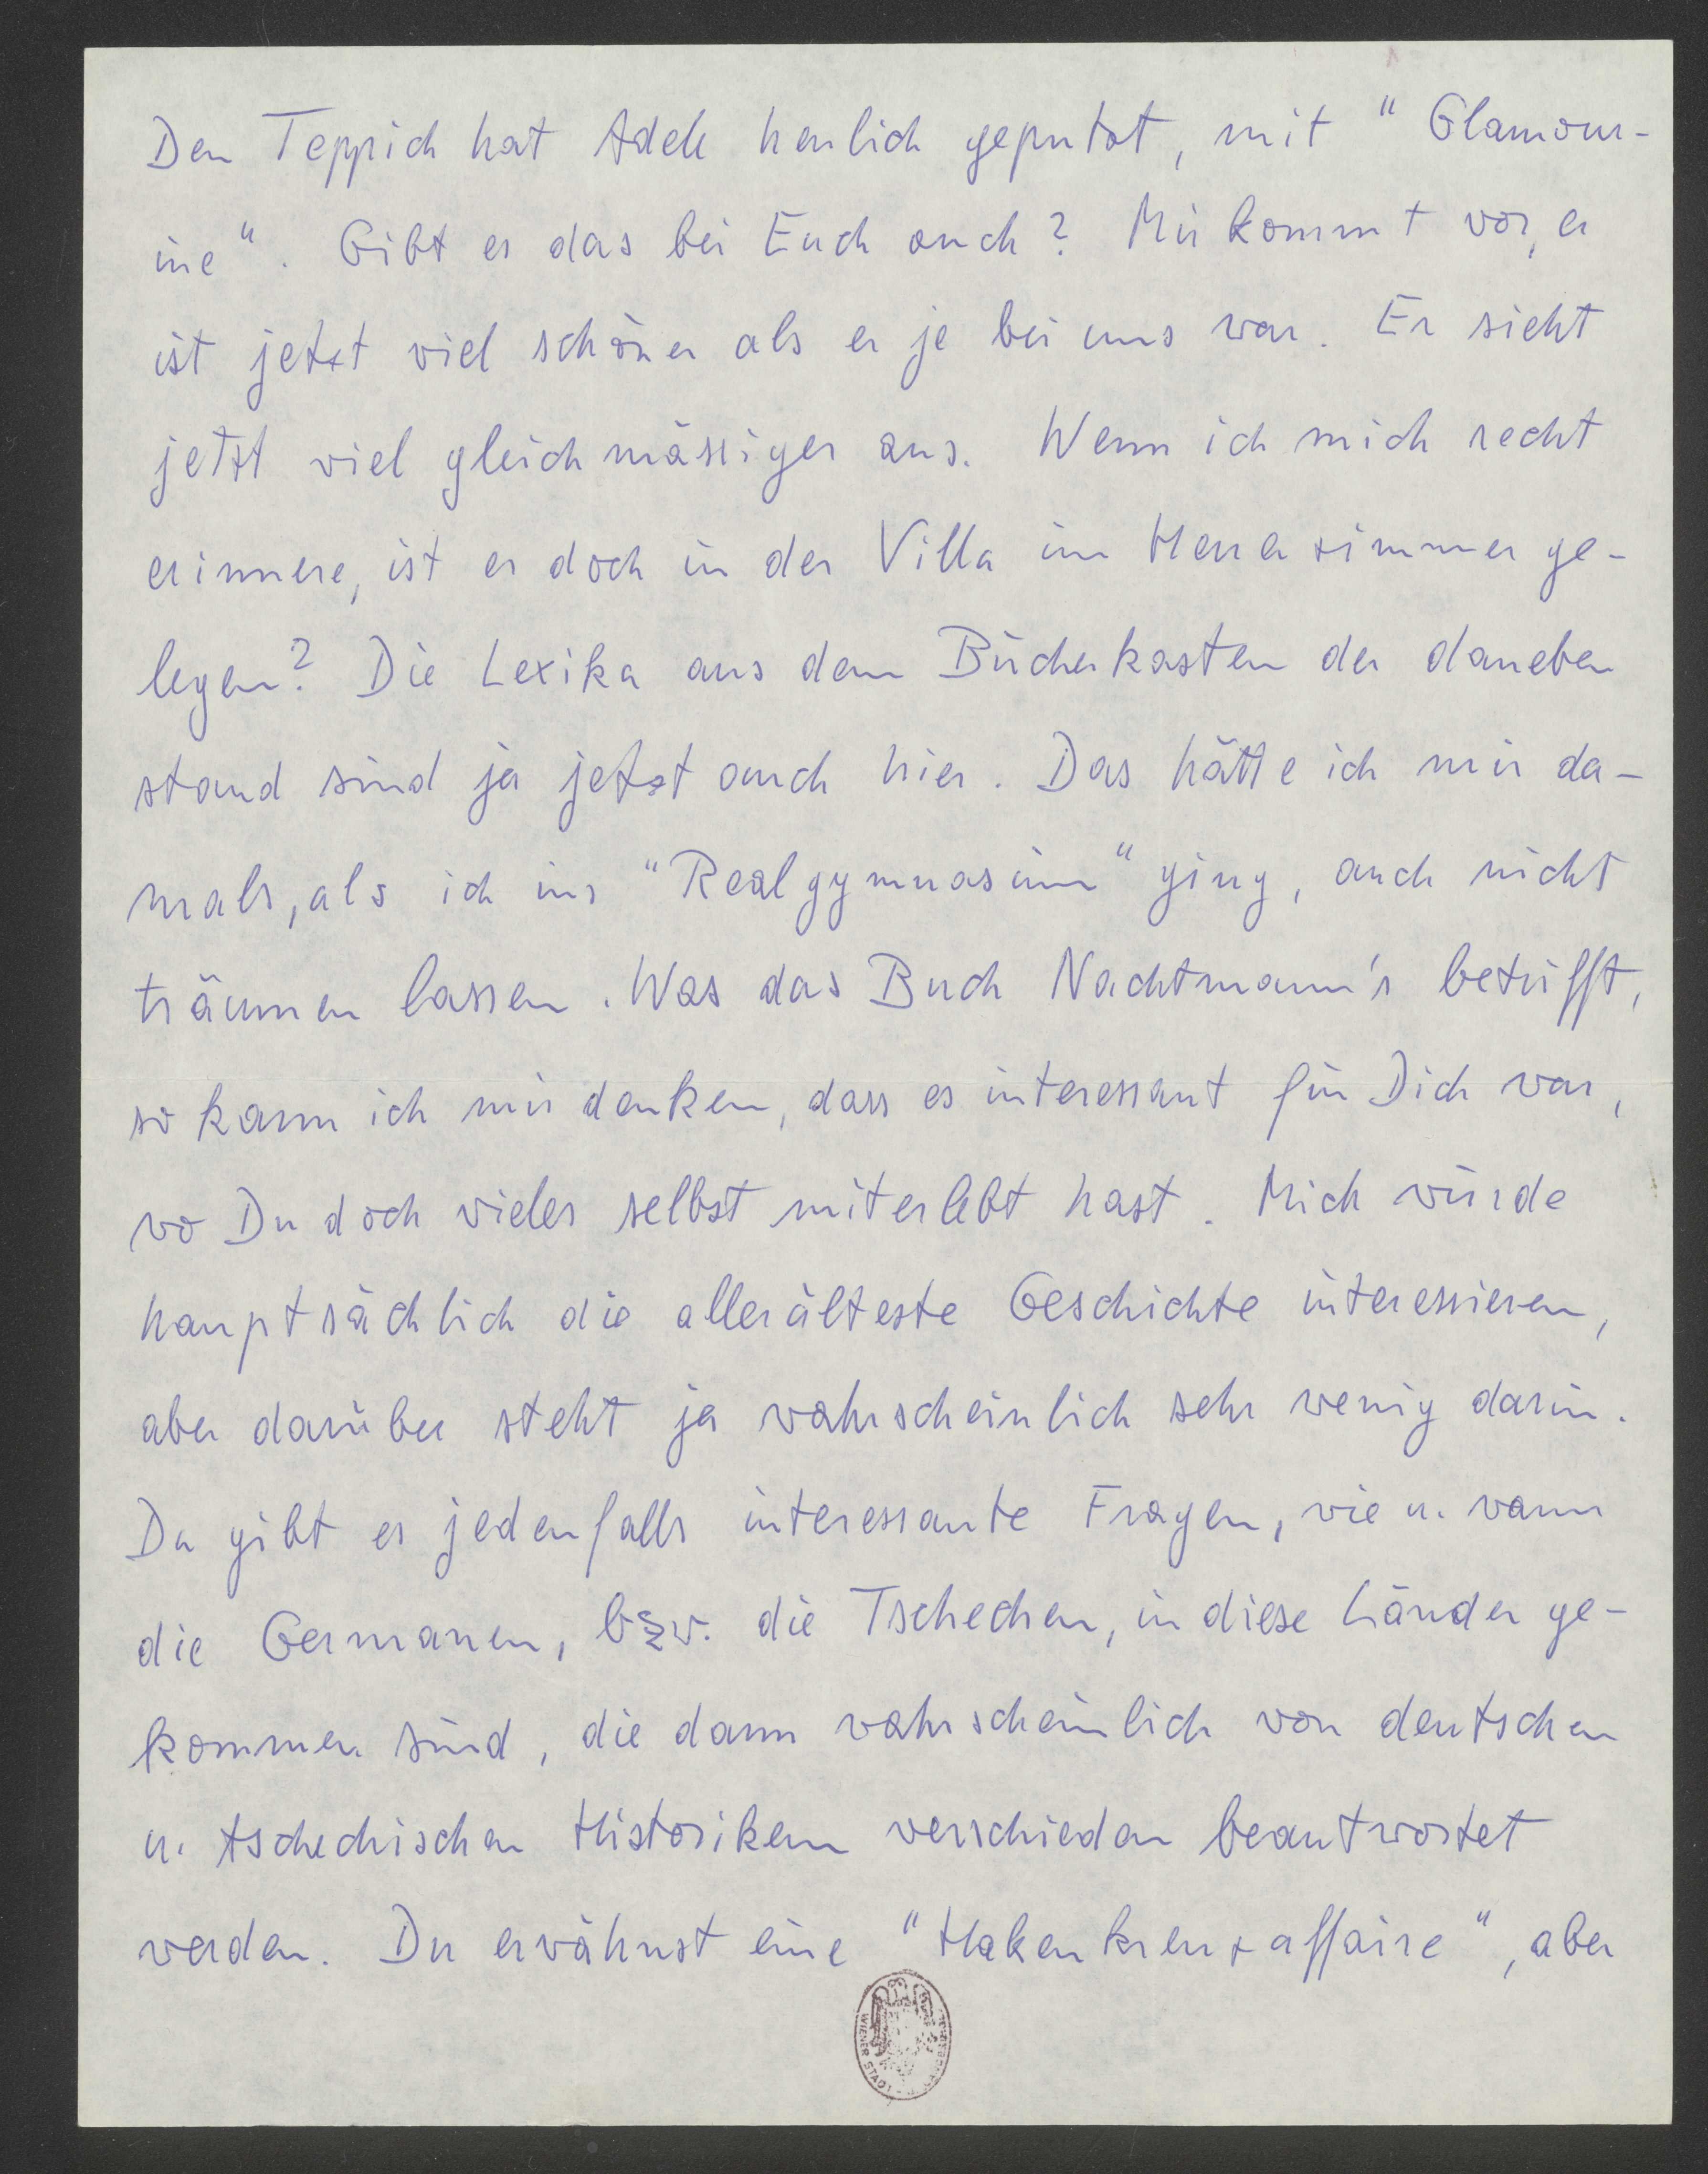 Den Teppich hat Adele herrlich geputzt, mit "Glamour-
ine". Gibt es das bei Euch auch? Mir kommt vor, er
ist jetzt viel schöner als er je bei uns war. Er sieht
jetzt viel gleichmässiger aus. Wenn ich mich recht
erinnere, ist er doch in der Villa im Herrenzimmer ge-
legen? Die Lexika aus dem Bücherkasten der daneben
stand sind ja jetzt auch hier. Das hätte ich mir da-
mals, als ich ins "Realgymnasium" ging, auch nicht
träumen lassen. Was das Buch Nachtmann's betrifft,
so kann ich mir denken, dass es interessant für Dich war,
wo Du doch vieles selbst miterlebt hast. Mich würde
hauptsächlich die allerälteste Geschichte interessieren,
aber darüber steht ja wahrscheinlich sehr wenig darin.
Da gibt es jedenfalls interessante Fragen, wie u. wann
die Germanen, bzw. die Tschechen, in diese Länder ge-
kommen sind, die dann wahrscheinlich von deutschen
u. tschechischen Historikern verschieden beantwortet
werden. Du erwähnst eine "Hakenkreuzaffaire", aber
WIENER STADT-